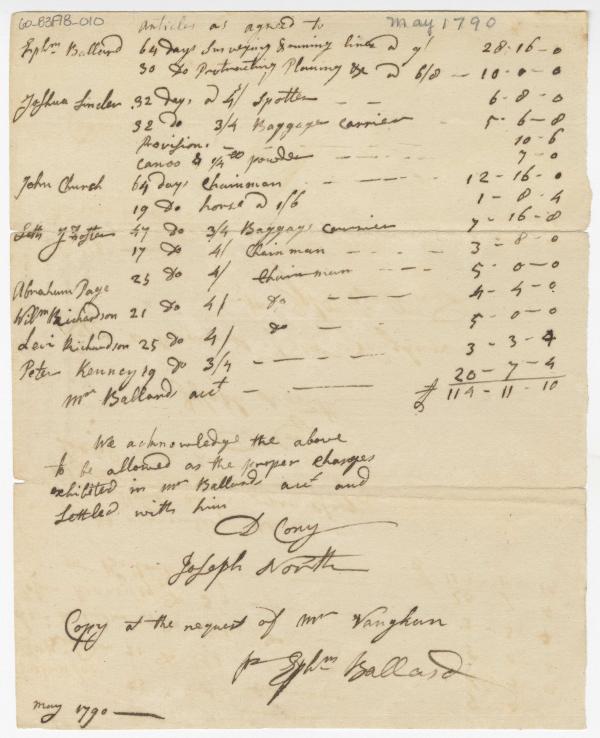 60-83F18-010
Articles as agreed to May 1790
Ephm Ballard 64 days Surveying & runing lines a 9/ 28-16-0
30 Do Protracting Planing &c a 6/8 — 10-0-0
Joshua Sincler 32 days a 4/ Spotter - - 6-8-0
32 do 3/4 Baggage Carrier - 5-6-8
Provision - - - - 10-6
Canoo & powder - - - 7-0
John Church 64 days Chainman - - - 12-16-0
19 Do horse a 1/6 1-8-4
Seth J Foster 47 Do 3/4 Baggage Carrier 7-16-8
17 Do 4/ Chainman - - - 3-8-0
Abraham Page 25 Do 4/ Chainman - - - 5-0-0
Willm Richardson 21 Do 4/ Do - - - 4-4-0
Levi Richardson 25 Do 4/ Do - - - 5-0-0
Peter Kenney 19 Do 3/4 - - - - 3-3-4
Mr Ballards acct - - - 20-7-4
£ 114-11-10
We acknowledge the above
to be allowed as the proper Charges
exhibited in Mr Ballards acct and
Settled with him
D Cony
Joseph North
Copy at the request of Mr Vaughan
pr Ephm Ballard
May 1790